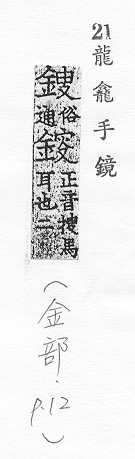 21 龍龕手鏡
鎪俗通正音搜馬耳也二
(金部．p.12)